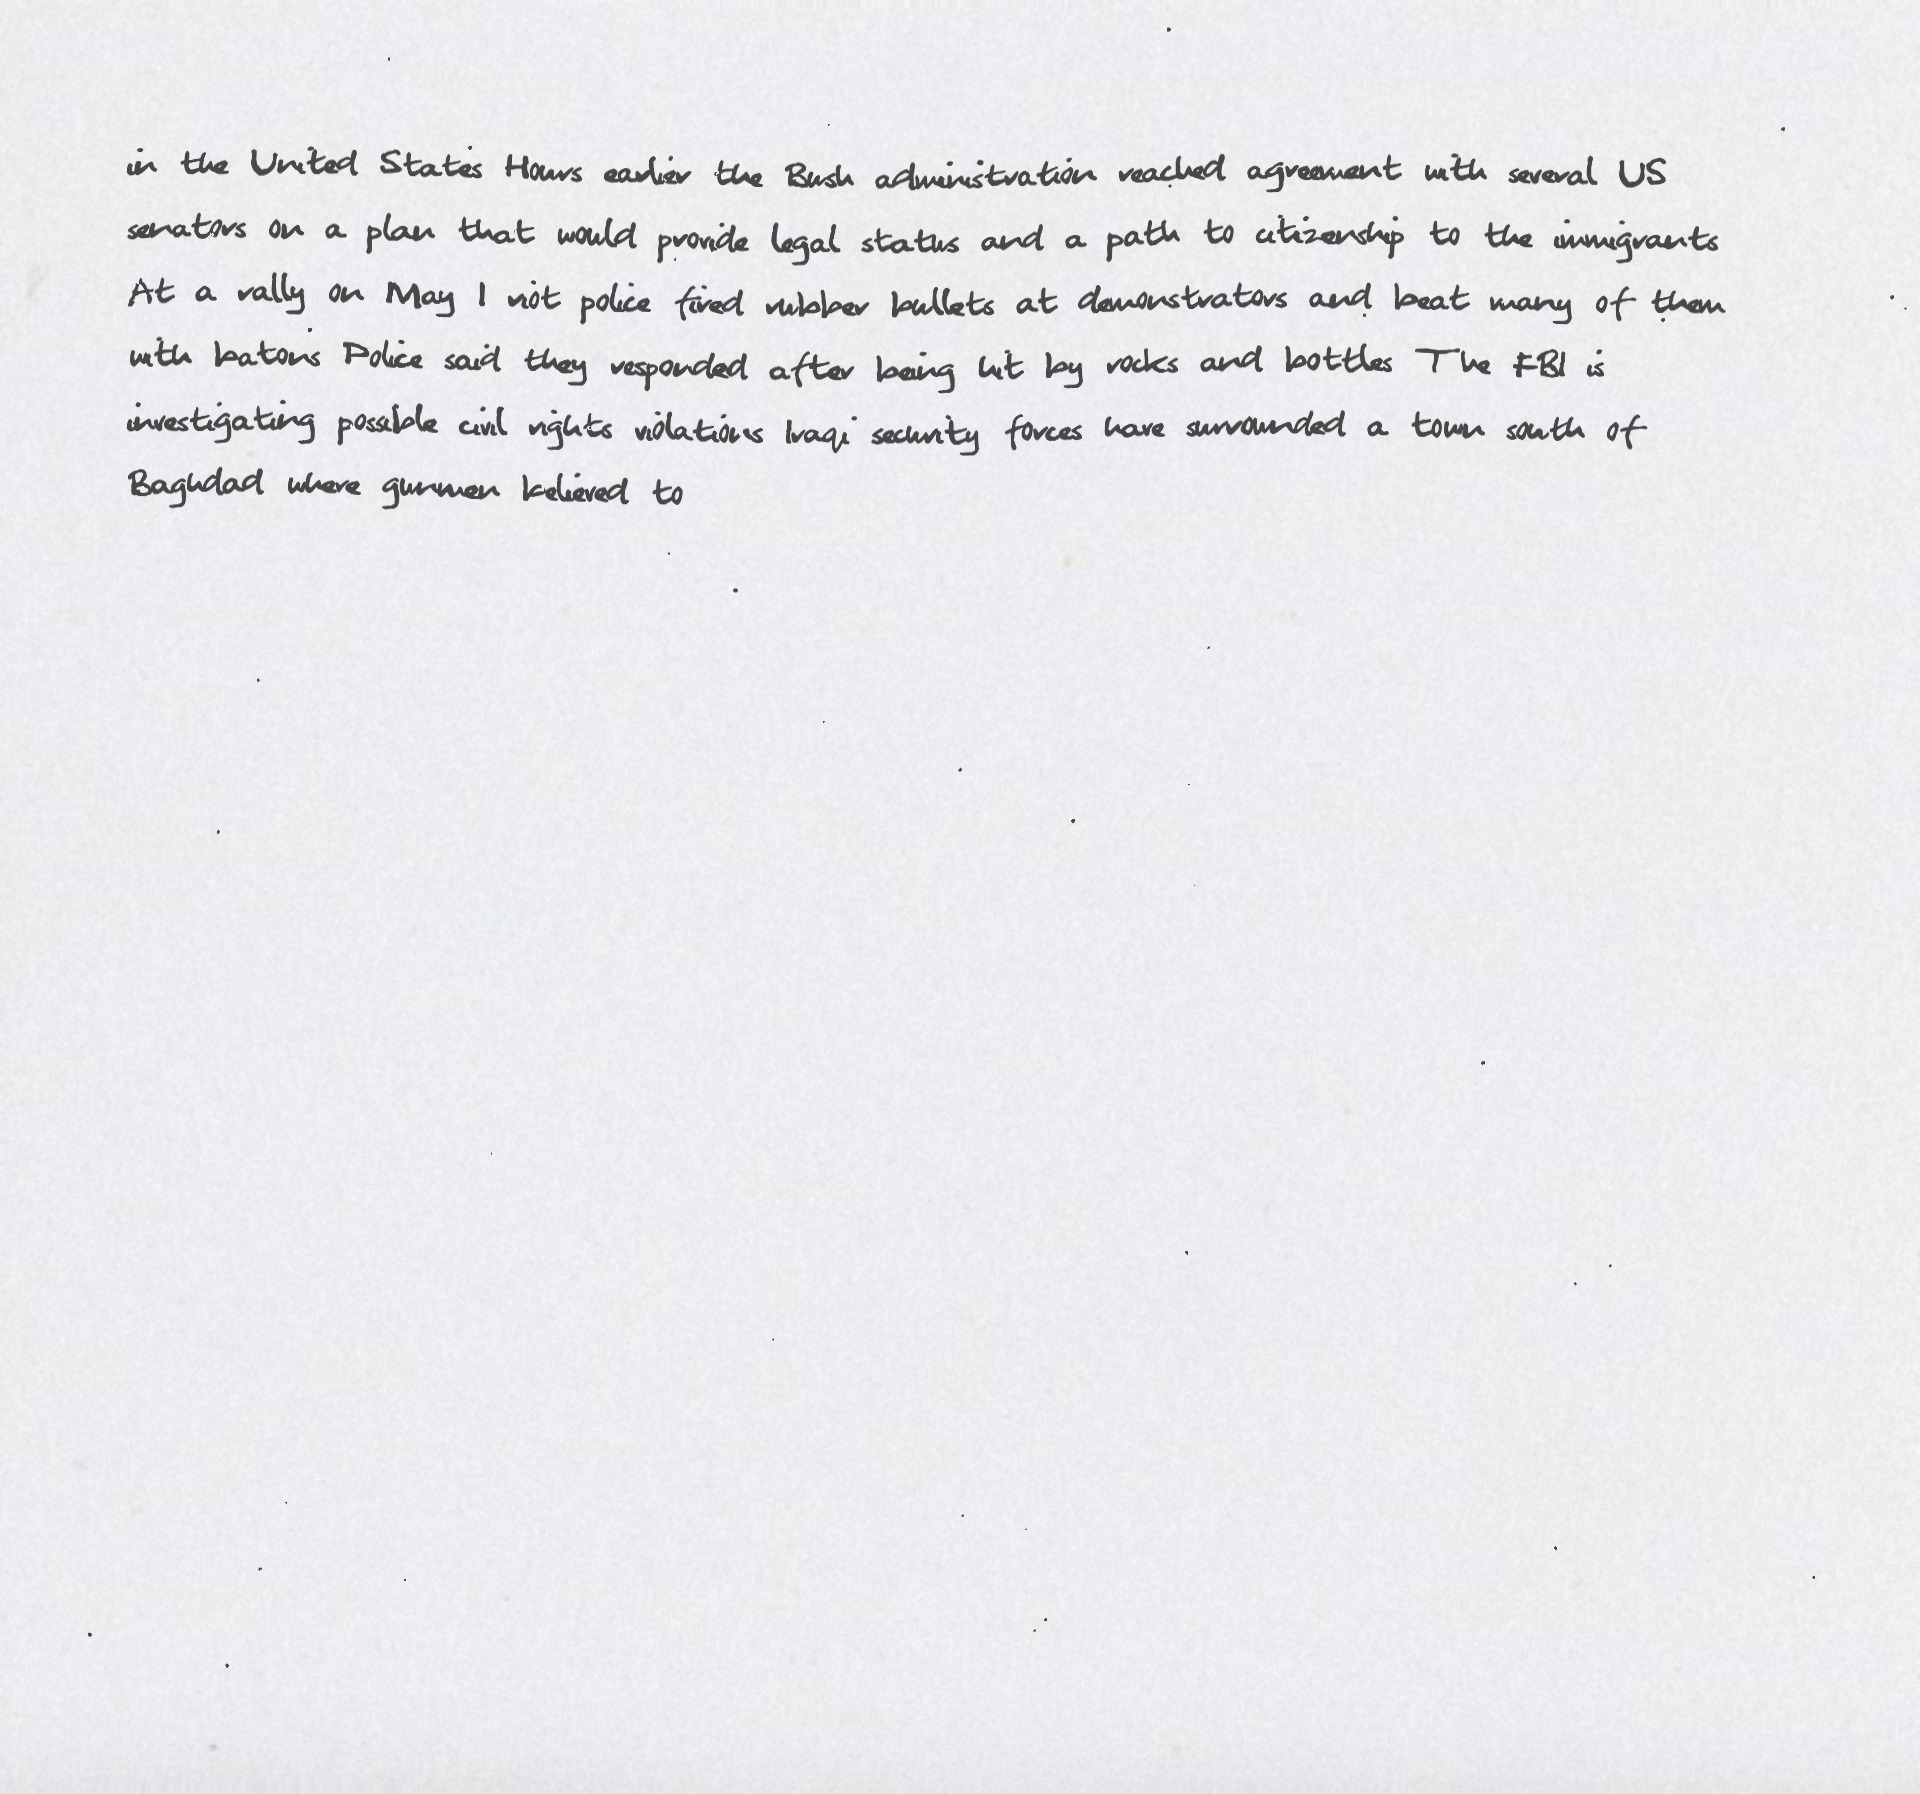 in the United States Hours earlier the Bush administration reached agreement with several US
senators on a plan that would provide legal status and a path to citizenship to the immigrants
At a rally on May 1 riot police fired rubber bullets at demonstrators and beat many of them
with batons Police said they responded after being hit by rocks and bottles The FBI is
investigating possible civil rights violations Iraqi security forces have surrounded a town south of
Baghdad where gunmen believed to